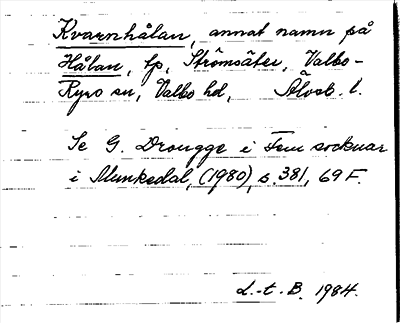 Kvarnhålan, annat namn på
Hålan, lp, Strömsäter, Valbo-
Ryrs sn, Valbo hd, Älvsb. l.
Se G. Drougge i Fem socknar
i Munkedal, (1980), s 381, 69 F.
L.-t. B. 1984.